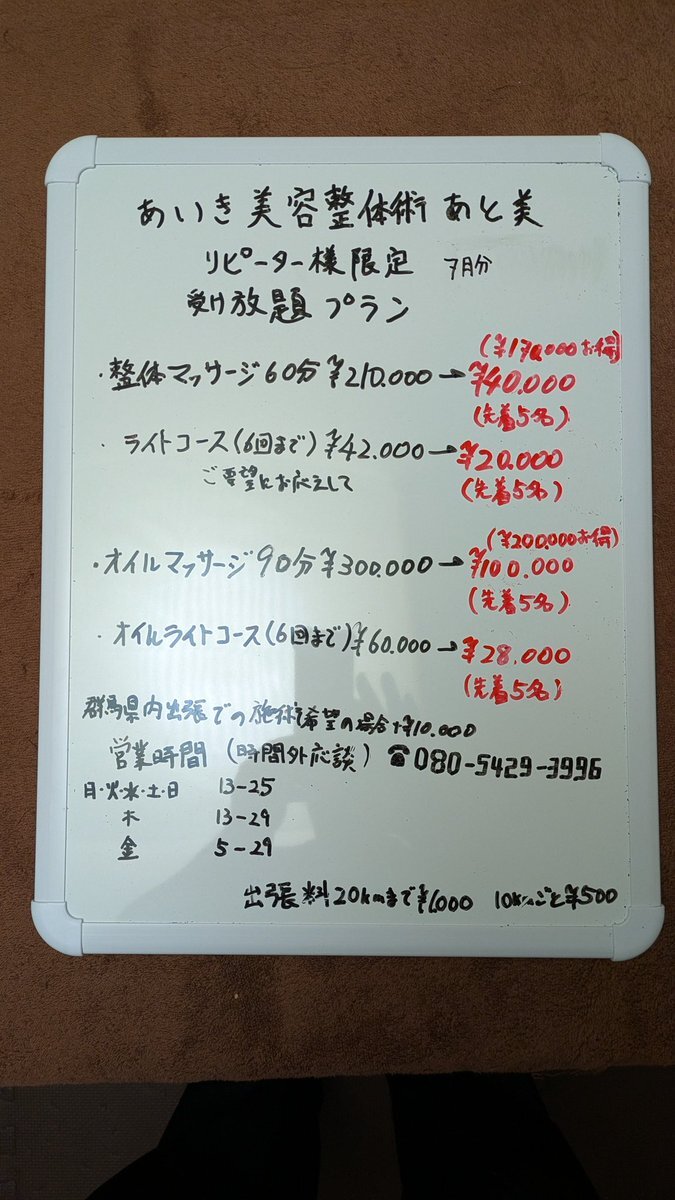 あいき美容整体術 あと美
リピーター様限定 7月分
受け放題 プラン
(¥170,000お得)
・整体マッサージ60分 ¥210.000→¥40.000
(先着5名)
・ライトコース(6回まで) ¥42.000→¥20.000
ご要望にお応えして
(先着5名)
(¥200.000お得)
・オイルマッサージ90分 ¥300.000→¥100.000
(先着5名)
・オイルライトコース(6回まで) ¥60.000→¥28.000
(先着5名)
群馬県内出張での施術希望の場合+¥10.000
営業時間 (時間外応談) ☎080-5429-3996
月・火・水・土・日 13-25
木 13-29
金 5-29
出張料20kmまで¥1,000 10kmごと¥500